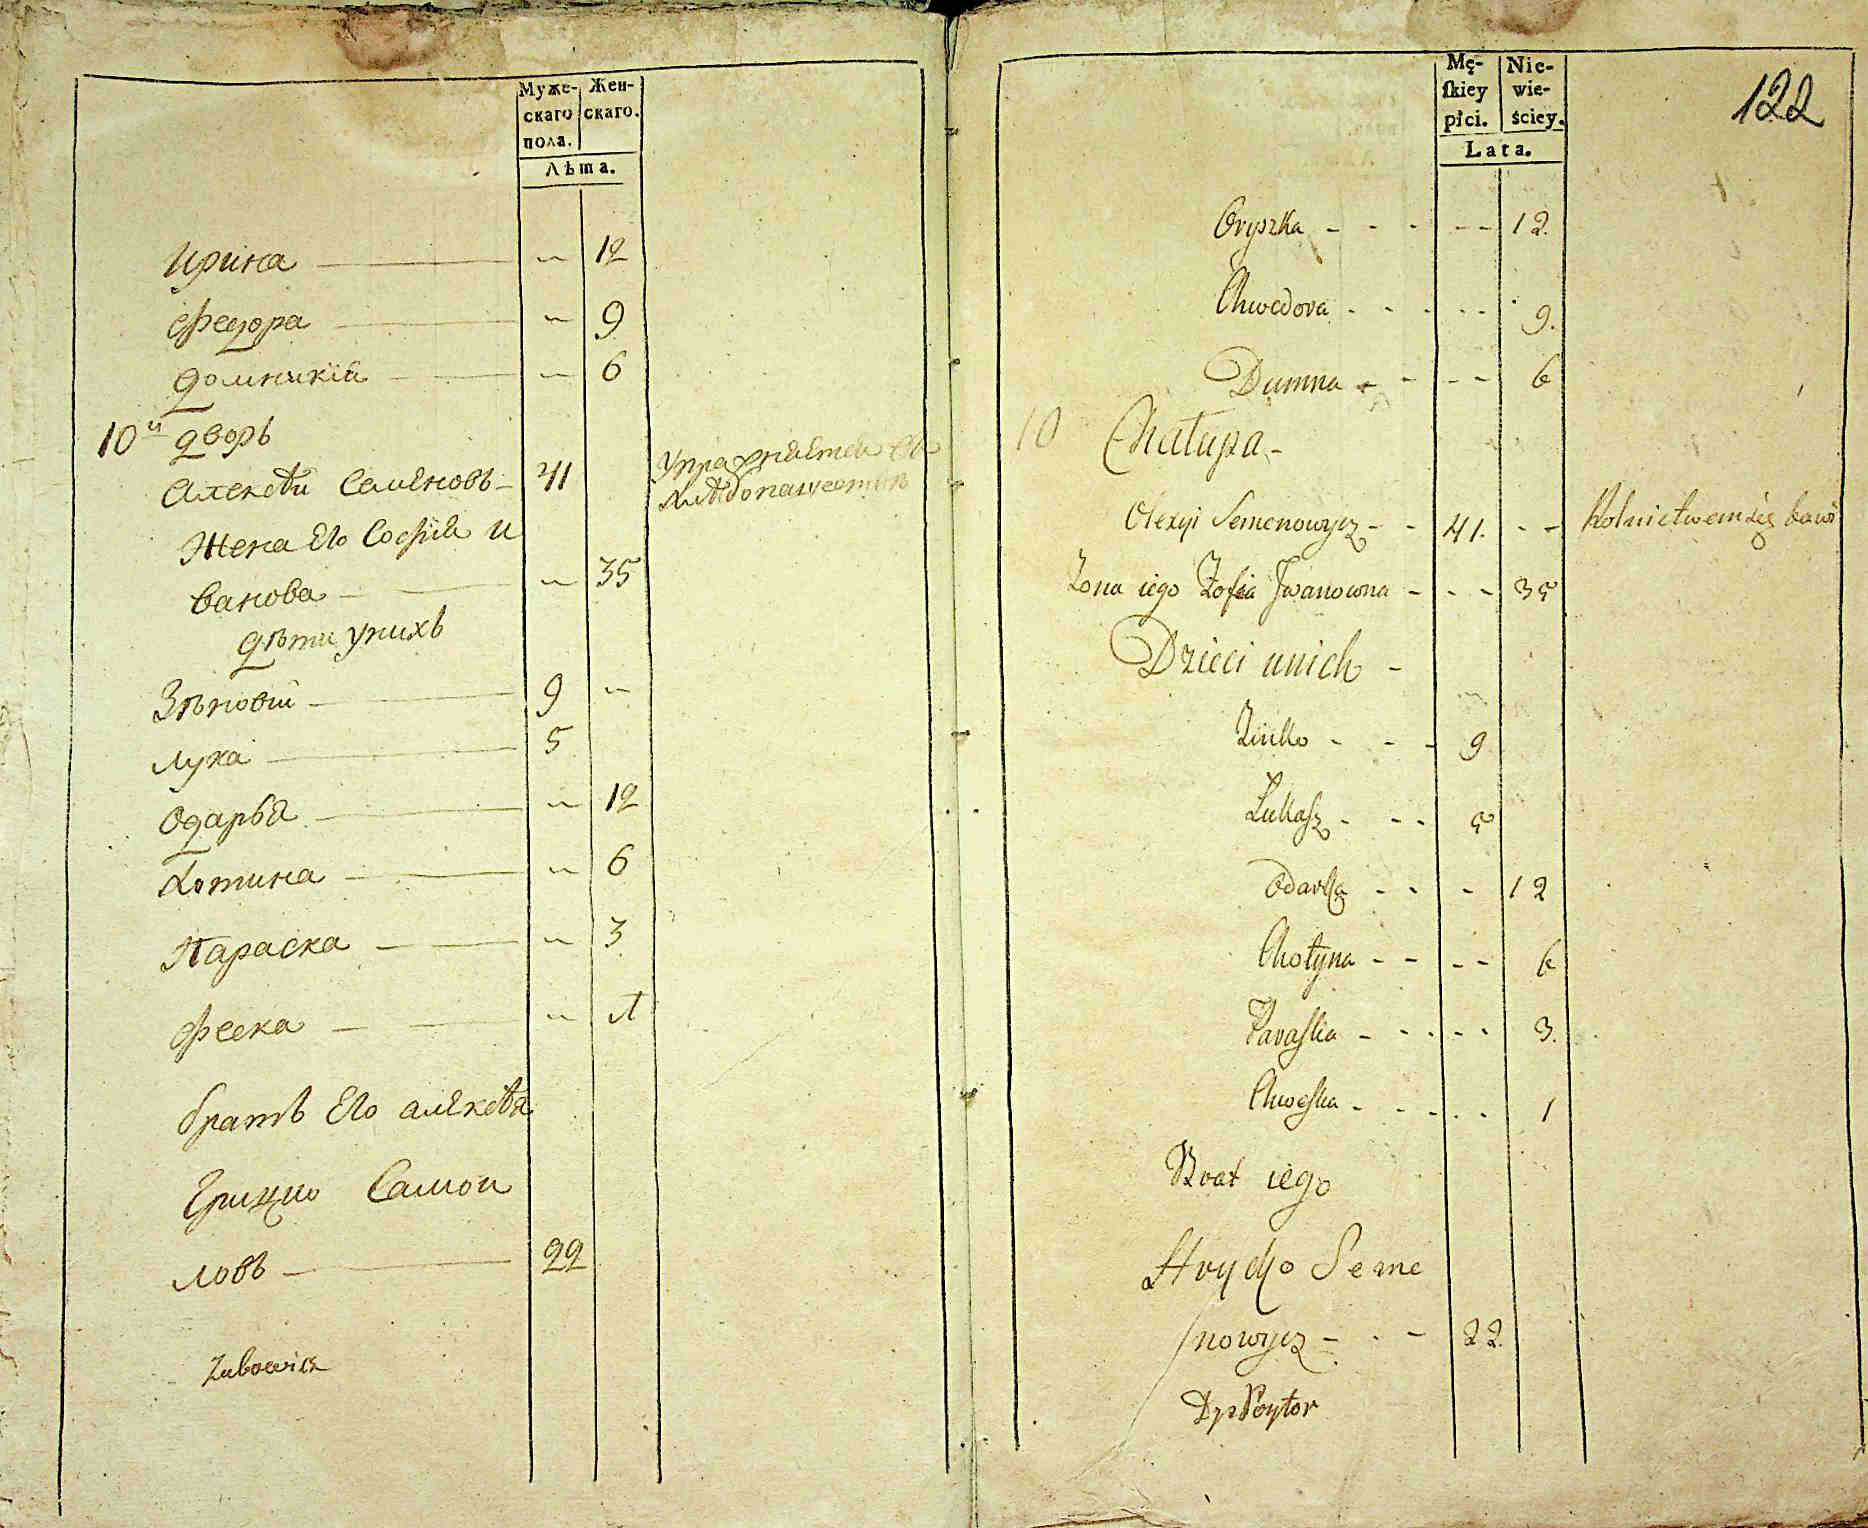 Муже-
скаго
пола.
Жен-
скаго.
Лѣта.
Ирина — „ 12
Ѳедора — „ 9
Домникия — „ 6
10й дворъ
Алексѣй Семеновъ — 41
Упражняется въ
хлѣбопашествѣ
Жена Его Софія И
ванова — „ 35
дѣти унихъ
Зѣновій — 9 „
Лука — 5
Одарья — „ 12
Хотина — „ 6
Параска — „ 3
Феска — „ 1
братъ Его алексѣя
Грицко Самои
ловъ — 22
Zubowicz
122
Mę-
ſkiey
płci.
Nie-
wie-
ściey.
Lata.
Oryszka - - - - - 12.
Chwedora - - - - - 9.
Dumna - - - - 6
10 Chałupa -
Olexyi Semenowycz - - 41. - - Rolnictwem się bawi
Zona iego Zofia Iwanowna - - - 35
Dzieci unich -
Zinko - - - 9
Łukaſz - - - 5
Odarka - - - 12
Chotyna - - - - 6
Paraſka - - - - - 3.
Chweſka - - - - - 1
Brat iego
Hryćko Seme
nowycz - - - 22.